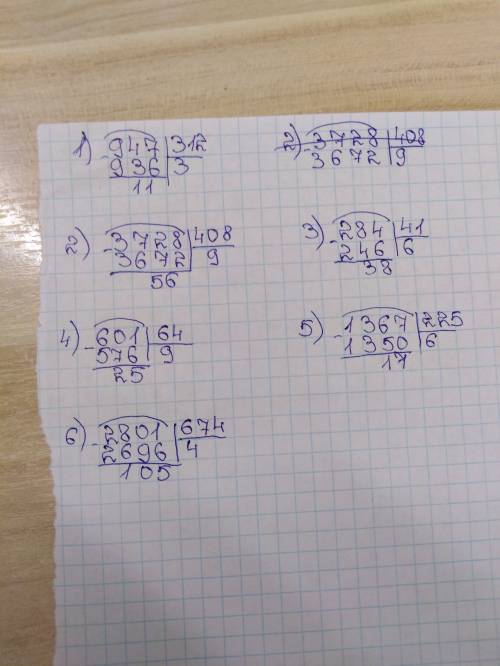 1) 947 | 312
- 936 | 3
11
2) 3728 | 408
- 3672 | 9
2) 3728 | 408
- 3672 | 9
56
3) 284 | 41
- 246 | 6
38
4) 601 | 64
- 576 | 9
25
5) 1367 | 225
- 1350 | 6
17
6) 2801 | 674
- 2696 | 4
105